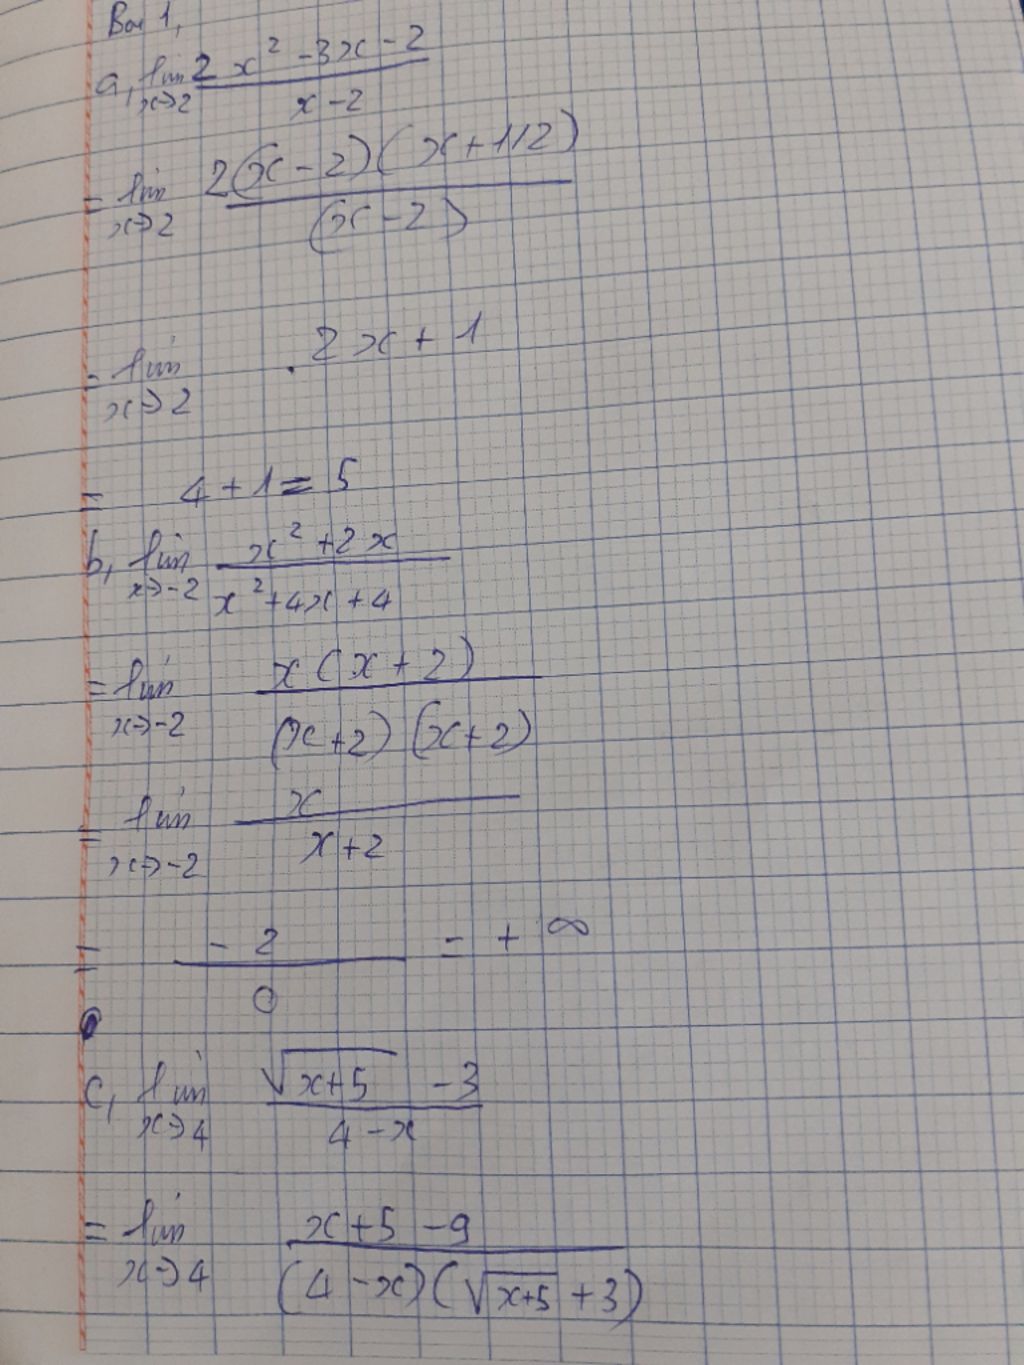 Bài 1,
a, lim x→2 (2x² - 3x - 2)/(x - 2)
= lim x→2 2(x - 2)(x + 1/2)/(x - 2)
= lim x→2 . 2x + 1
= 4 + 1 = 5
b, lim x→-2 (x² + 2x)/(x² + 4x + 4)
= lim x→-2 x(x + 2)/(x + 2)(x + 2)
= lim x→-2 x/(x + 2)
= -2/0 = +∞
c, lim x→4 (√(x+5) - 3)/(4 - x)
= lim x→4 (x + 5 - 9)/(4 - x)(√(x+5) + 3)